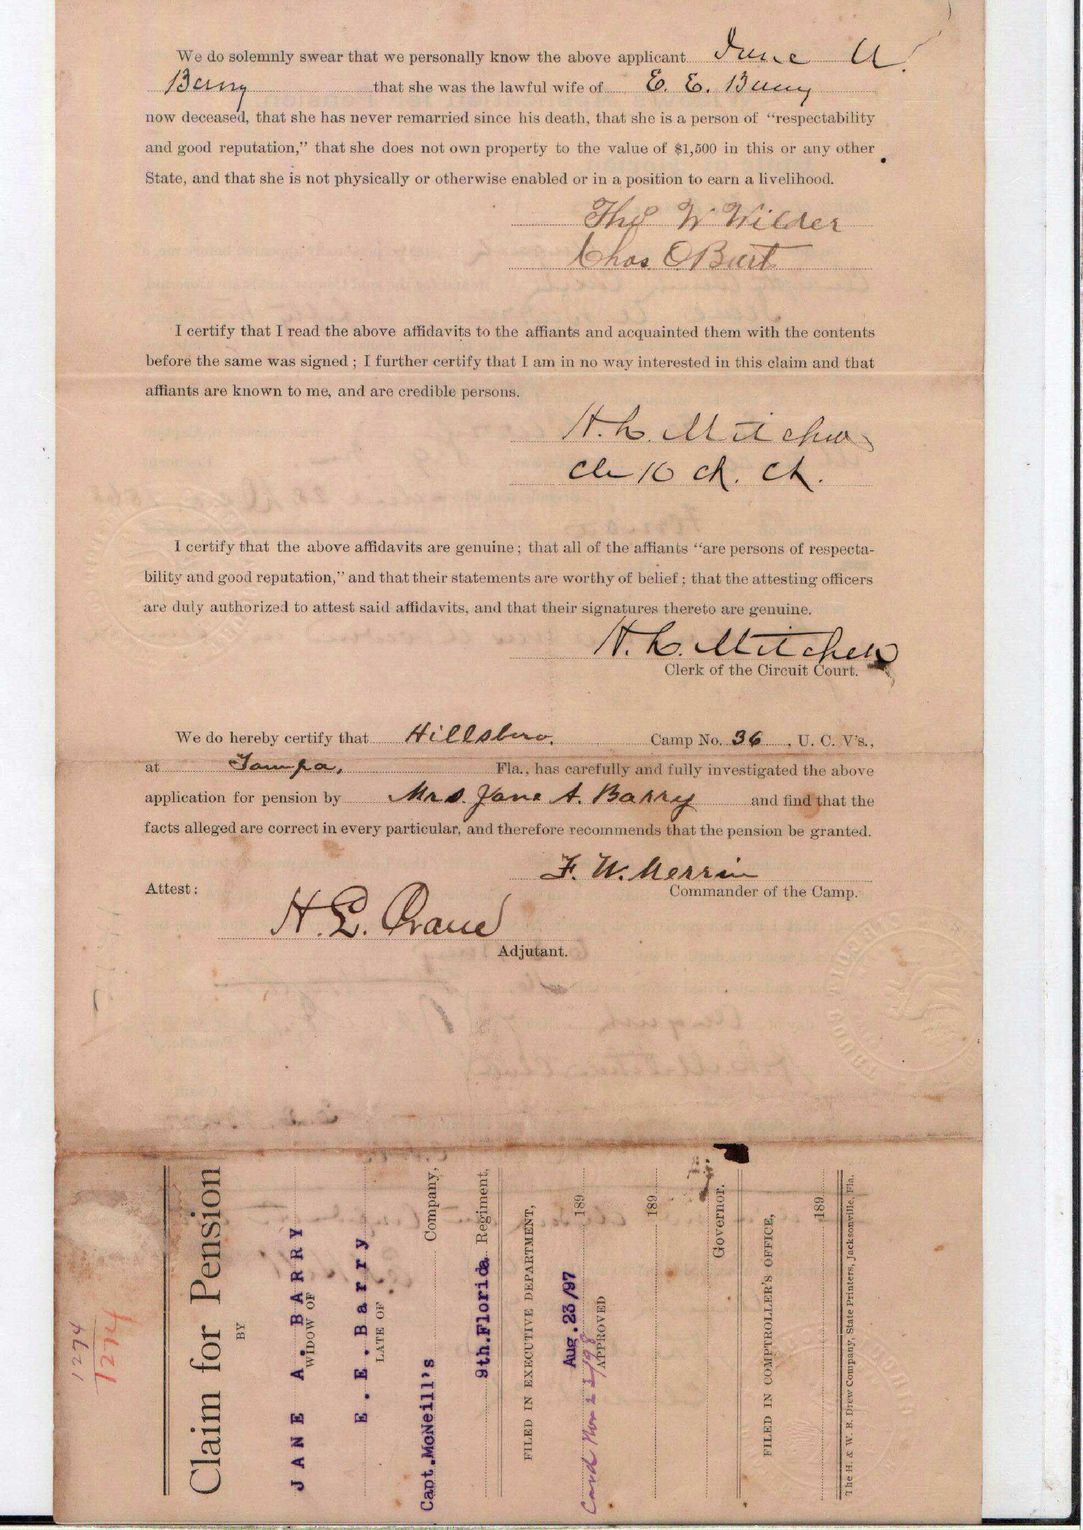 We do solemnly swear that we personally know the above applicant Jane A.
Barry that she was the lawful wife of E. E. Barry
now deceased, that she has never remarried since his death, that she is a person of “respectability
and good reputation,” that she does not own property to the value of $1,500 in this or any other
State, and that she is not physically or otherwise enabled or in a position to earn a livelihood.
Thos W Wilder
Chas. O Burt
I certify that I read the above affidavits to the affiants and acquainted them with the contents
before the same was signed ; I further certify that I am in no way interested in this claim and that
affiants are known to me, and are credible persons.
H. L. Mitchell
Clk
I certify that the above affidavits are genuine ; that all of the affiants “are persons of respecta-
bility and good reputation,” and that their statements are worthy of belief ; that the attesting officers
are duly authorized to attest said affidavits, and that their signatures thereto are genuine.
H. L. Mitchell
Clerk of the Circuit Court.
We do hereby certify that Hillsboro, Camp No. 36, U. C. V's.,
at Tampa, Fla., has carefully and fully investigated the above
application for pension by Mrs. Jane A. Barry and find that the
facts alleged are correct in every particular, and therefore recommends that the pension be granted.
F. W. Merrin
Commander of the Camp.
Attest :
H. L. Crane
Adjutant.
1274
1274
Claim for Pension
BY
JANE A. BARRY
WIDOW OF
E. E. Barry
LATE OF
Capt. McNeill's Company,
9th. Florida Regiment,
FILED IN EXECUTIVE DEPARTMENT,
Aug. 23/97 189
Card Nov 22/98
APPROVED
189
Governor.
FILED IN COMPTROLLER'S OFFICE,
189
The H. & W. B. Drew Company, State Printers, Jacksonville, Fla.